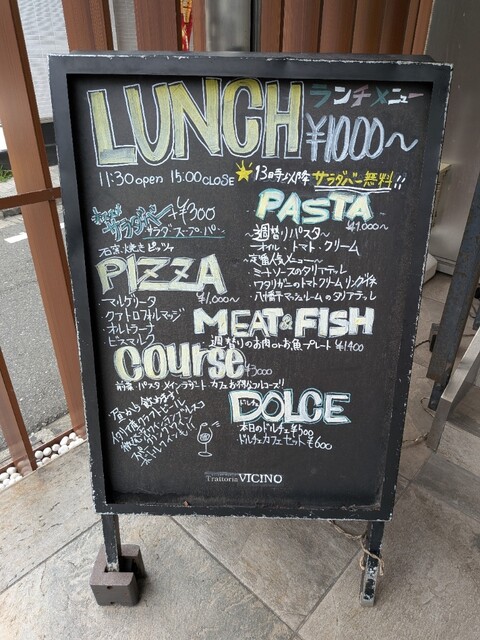 LUNCH ランチメニュー
¥1000～
11:30 open 15:00 CLOSE ★13時以降 サラダバー無料!!
サラダバー +¥300
サラダ スープ バー
PASTA ¥1,000～
～週替りパスタ～
オイル・トマト・クリーム
定番人気メニュー～
・ミートソースのタリアテッレ
・ワタリガニのトマトクリーム リングイネ
・八幡平マッシュルームのタリアテッレ
石窯焼きピッツァ
PIZZA ¥1,000～
・マルゲリータ
・クアトロフォルマッジ
・オルトラーナ
・ビスマルク
MEAT & FISH
週替りのお肉orお魚プレート ¥1400
course ¥3000
前菜 パスタ メイン ドルチェ カフェ お得なコース!!
昼から飲めます!
DOLCE
ドルチェ
本日のドルチェ ¥500
ドルチェカフェセット ¥600
Trattoria VICINO